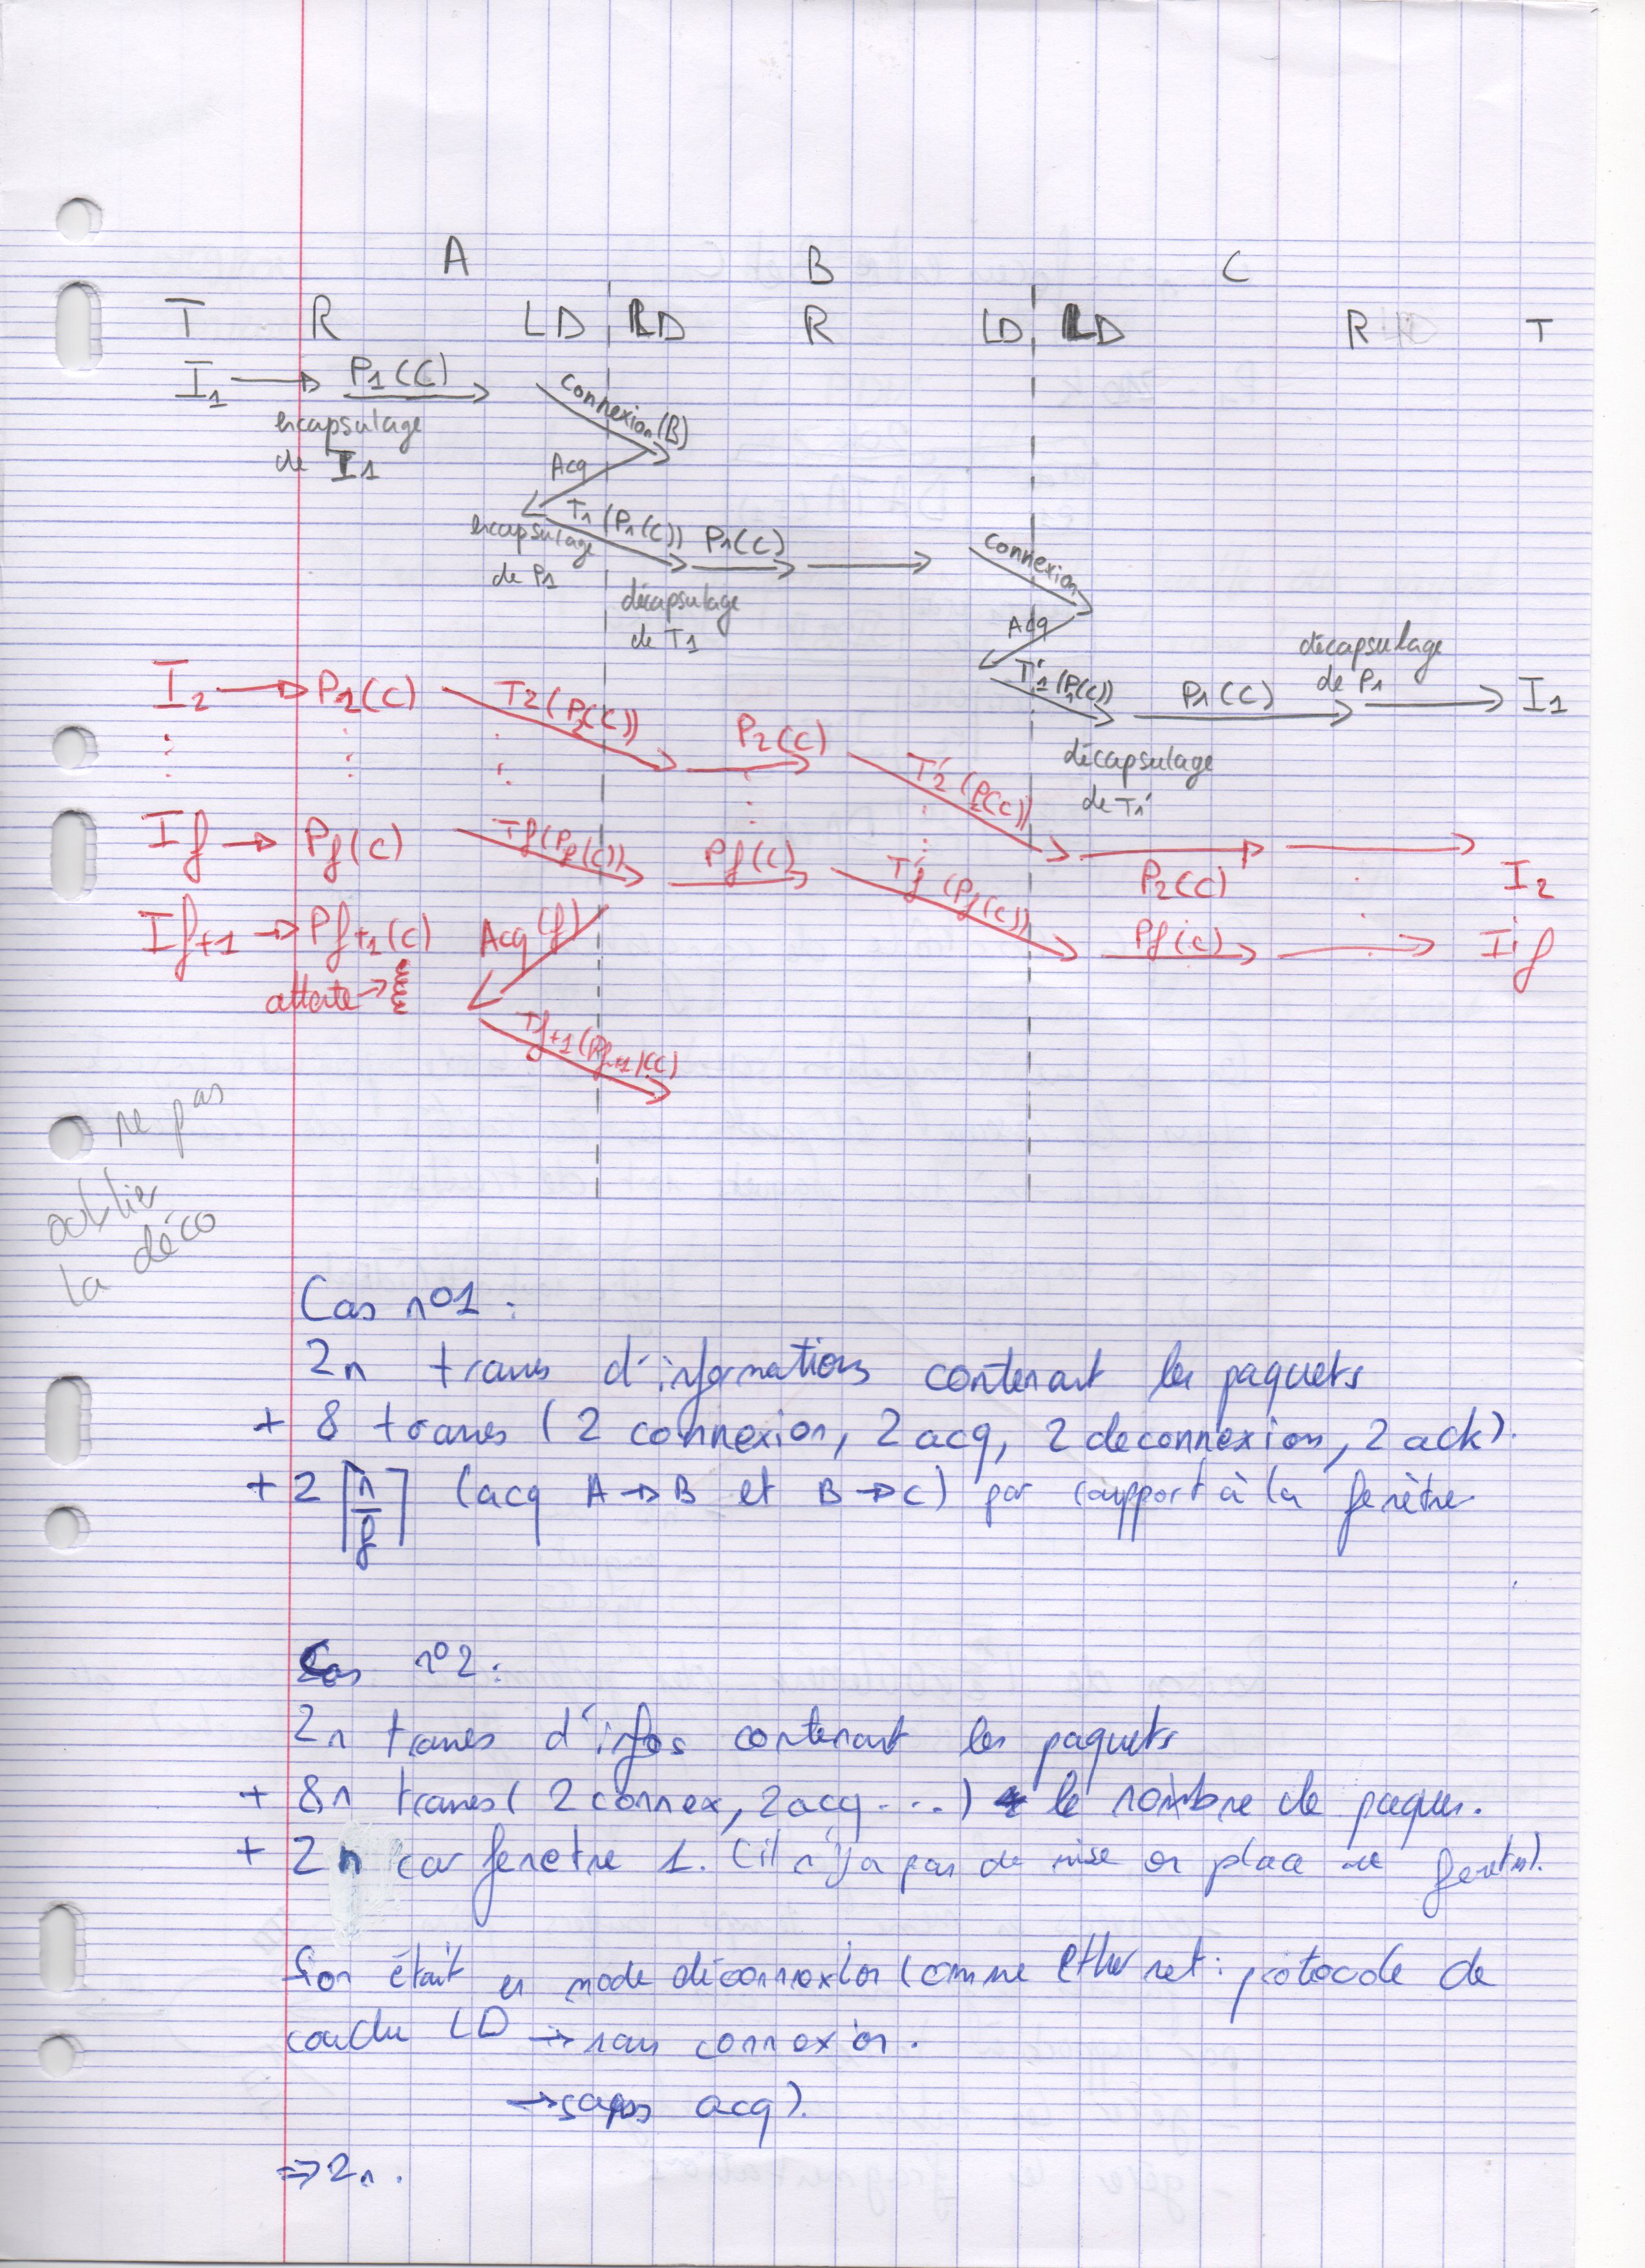 A B C
T R LD LD R LD LD R T
I1 P1(C) connexion(B)
encapsulage
de I1
Acq
T1(P1(C)) P1(C) connexion
encapsulage
de P1
décapsulage
de T1
Acq
T'1(P1(C)) P1(C) I1
décapsulage
de P1
décapsulage
de T1'
I2 P2(C) T2(P2(C)) P2(C) T'2(P2(C)) P2(C) I2
If Pf(C) Tf(Pf(C)) Pf(C) T'f(Pf(C)) Pf(C) If
If+1 Pf+1(C) Acq(f)
attente
Tf+1(Pf+1(C)
ne pas
oublier
la déco
Cas n°1 :
2n trames d'informations contenant les paquets
+ 8 trames (2 connexion, 2 acq, 2 deconnexion, 2 ack).
+ 2 ⌈n/f⌉ (acq A→B et B→C) par rapport à la fenêtre
Cas n°2 :
2n trames d'infos contenant les paquets
+ 8n trames (2 connex, 2 acq ...) le nombre de paques.
+ 2n car fenetre 1. (il n'y a pas de mise en place de fenetre).
Si on était en mode déconnexion (comme ethernet : protocole de
couche LD → sans connexion.
→ sans acq).
⇒ 2n.